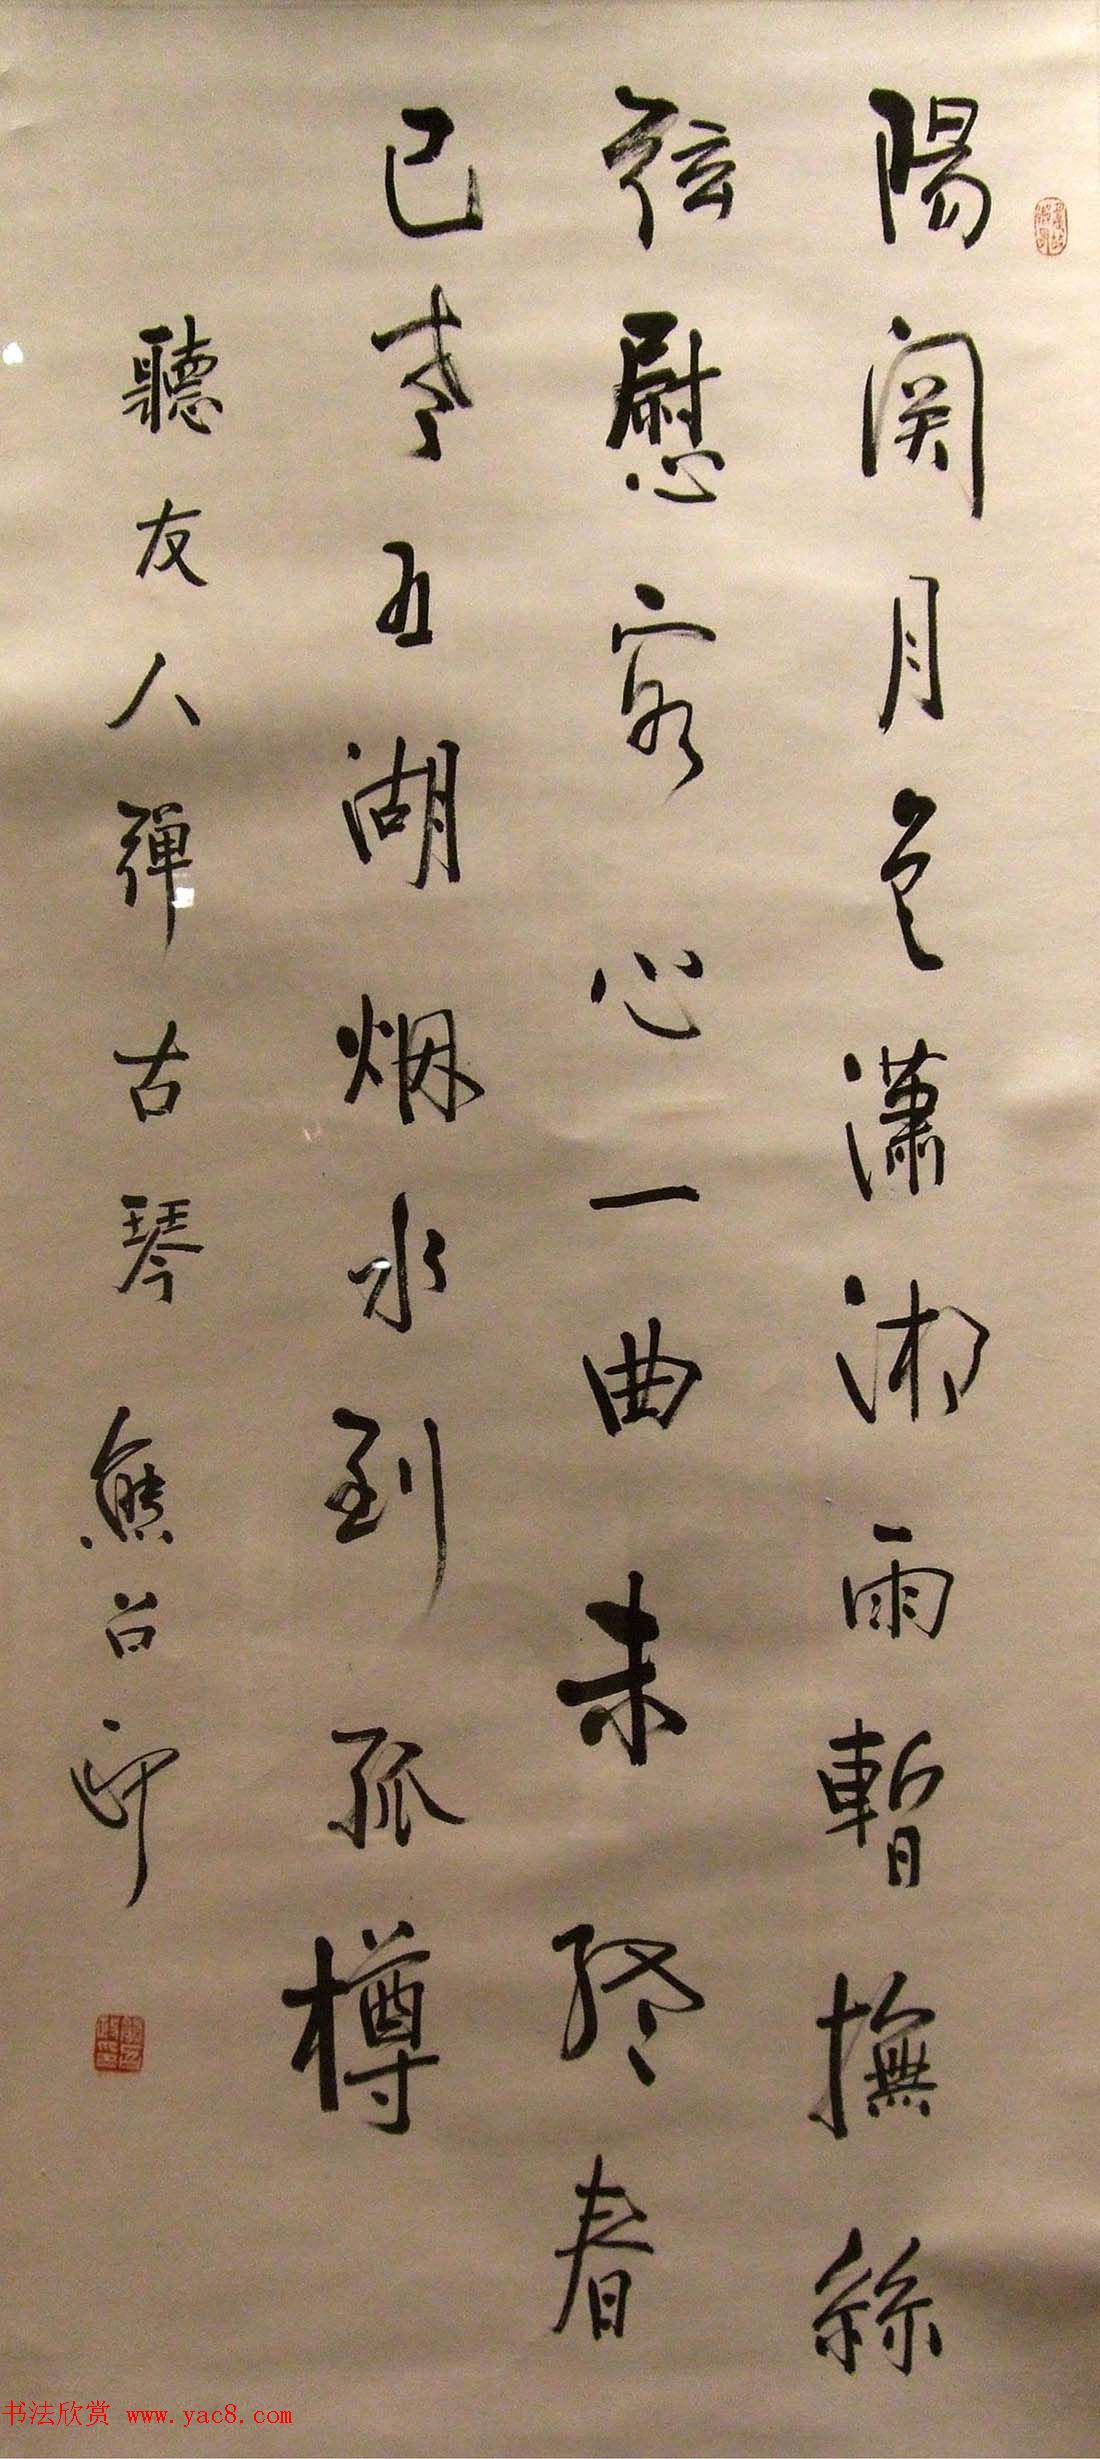 陽関月色瀟湘雨暫撫絲
弦慰客心一曲未終春
已老五湖烟水到孤樽
聽友人彈古琴 熊召政
书法欣赏 www.yac8.com